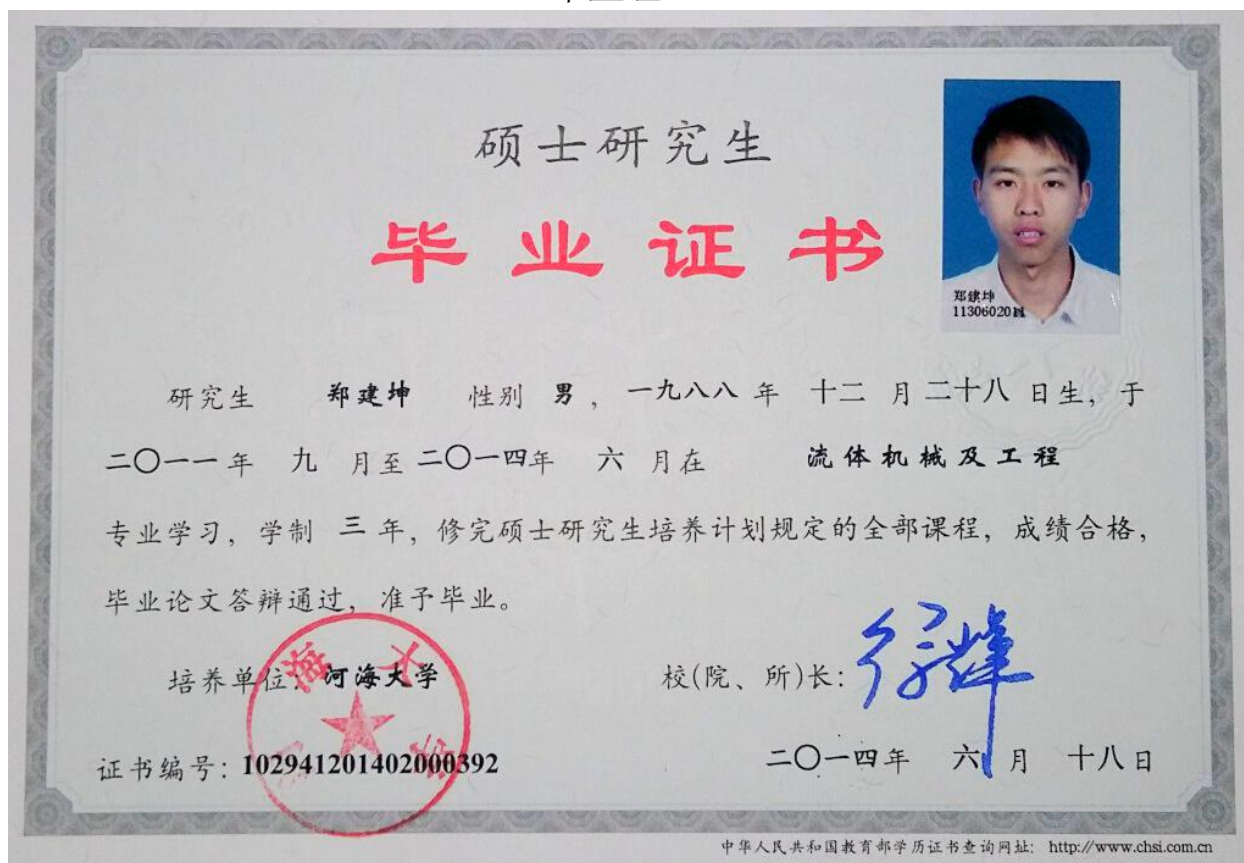 硕士研究生
毕业证书
郑建坤
113060201
研究生 郑建坤 性别 男，一九八八 年 十二 月 二十八 日生，于
二〇一一年 九 月至 二〇一四年 六 月在 流体机械及工程
专业学习，学制 三 年，修完硕士研究生培养计划规定的全部课程，成绩合格，
毕业论文答辩通过，准予毕业。
培养单位：河海大学 校(院、所)长：徐辉
河海大学
证书编号：102941201402000392 二〇一四年 六 月 十八 日
中华人民共和国教育部学历证书查询网址： http://www.chsi.com.cn